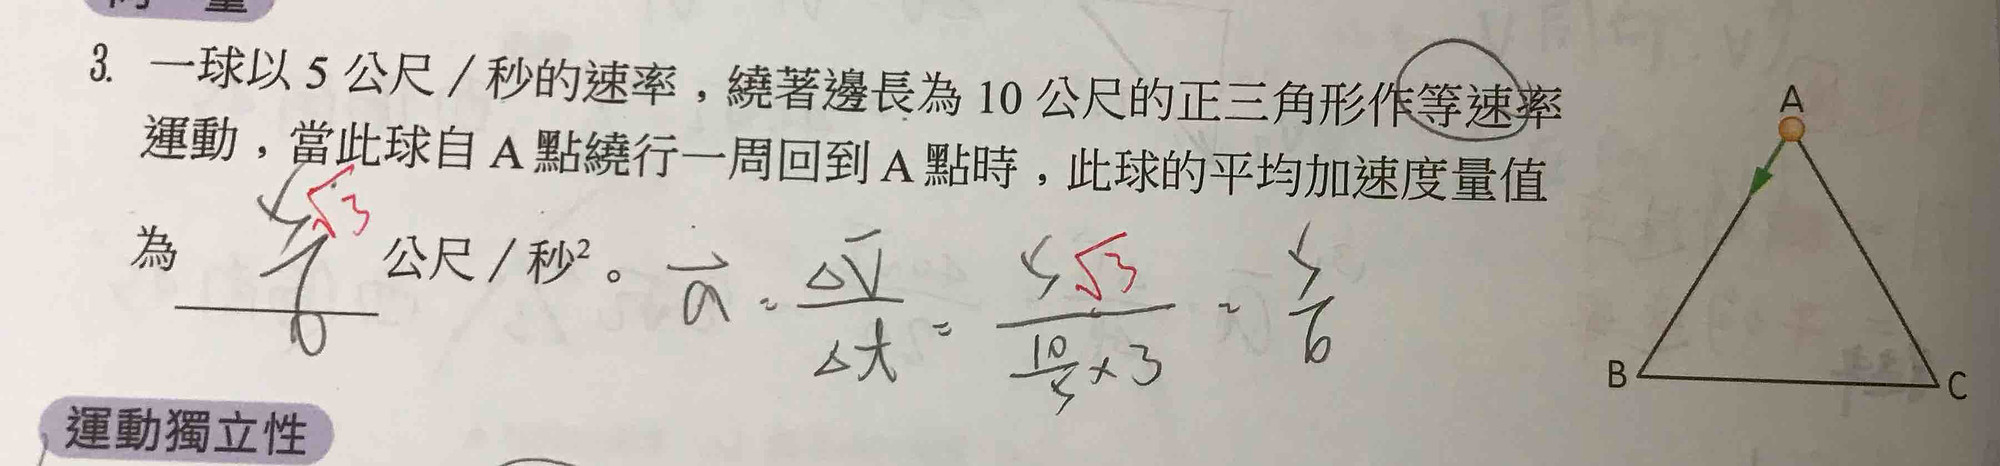 向量
3. 一球以 5 公尺／秒的速率，繞著邊長為 10 公尺的正三角形作等速率
運動，當此球自 A 點繞行一周回到 A 點時，此球的平均加速度量值
為 5√3/6 公尺／秒²。 a = ΔV/Δt = 5√3/(10/5×3) = 5/6
A
B
C
運動獨立性